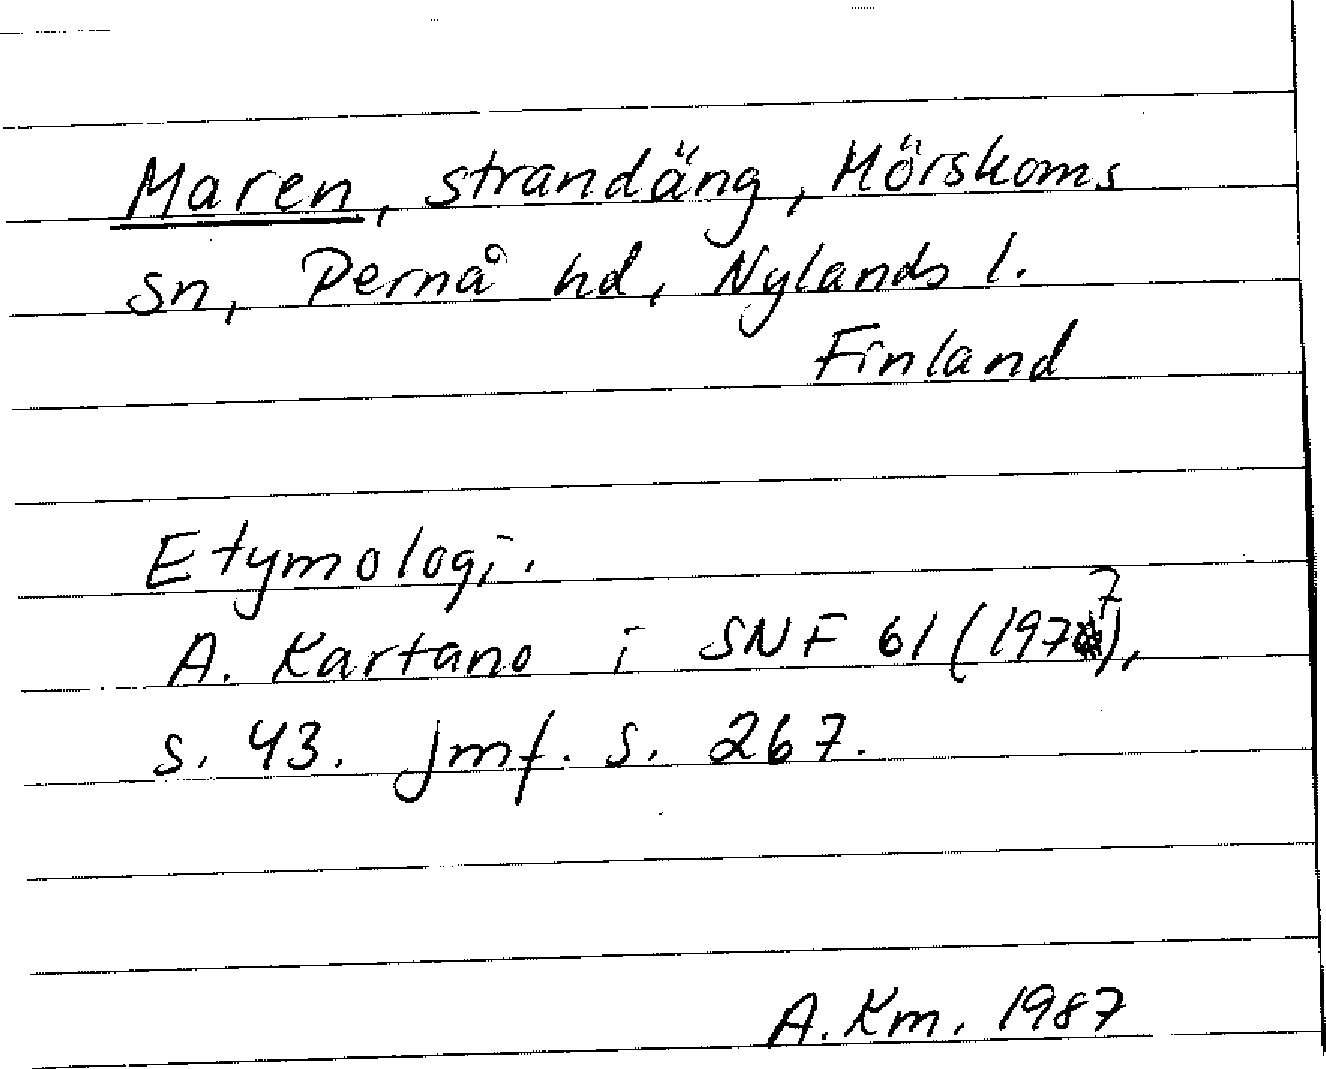 Maren, strandäng, Mörskoms
sn, Pernå hd, Nylands l.
Finland
Etymologi.
A. Kartano i SNF 61 (1977),
s. 43. jmf. s. 267.
A. Km. 1987